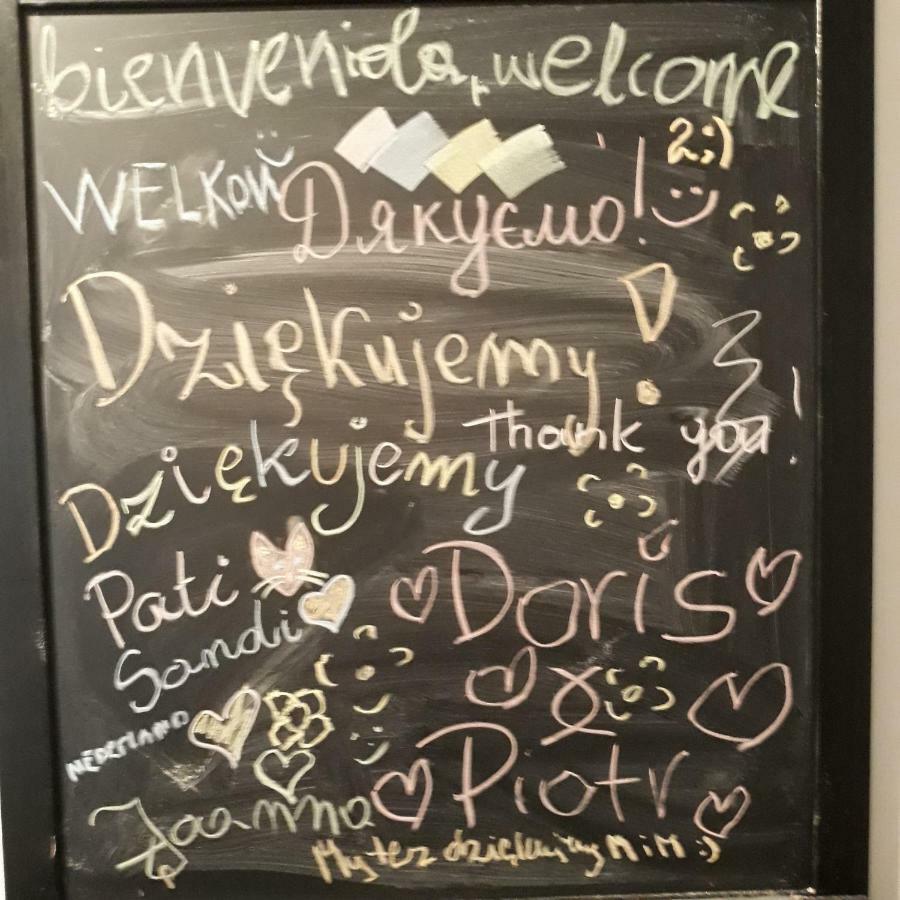 bienvenido, welcome
WELKOM
Дякуємо!
Dziękujemy!
Thank you!
Dziękujemy
Pati
Sandi
Doris
&
NEDERLAND
Piotr
Joanna
My też dziękujemy M i M :)